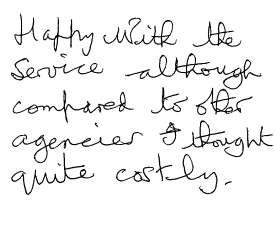 Happy With the
Service although
compared to other
agencies I thought
quite costly.